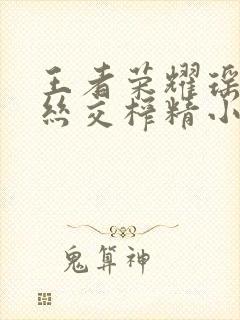 王者荣耀瑶
丝交榨精小
鬼算神